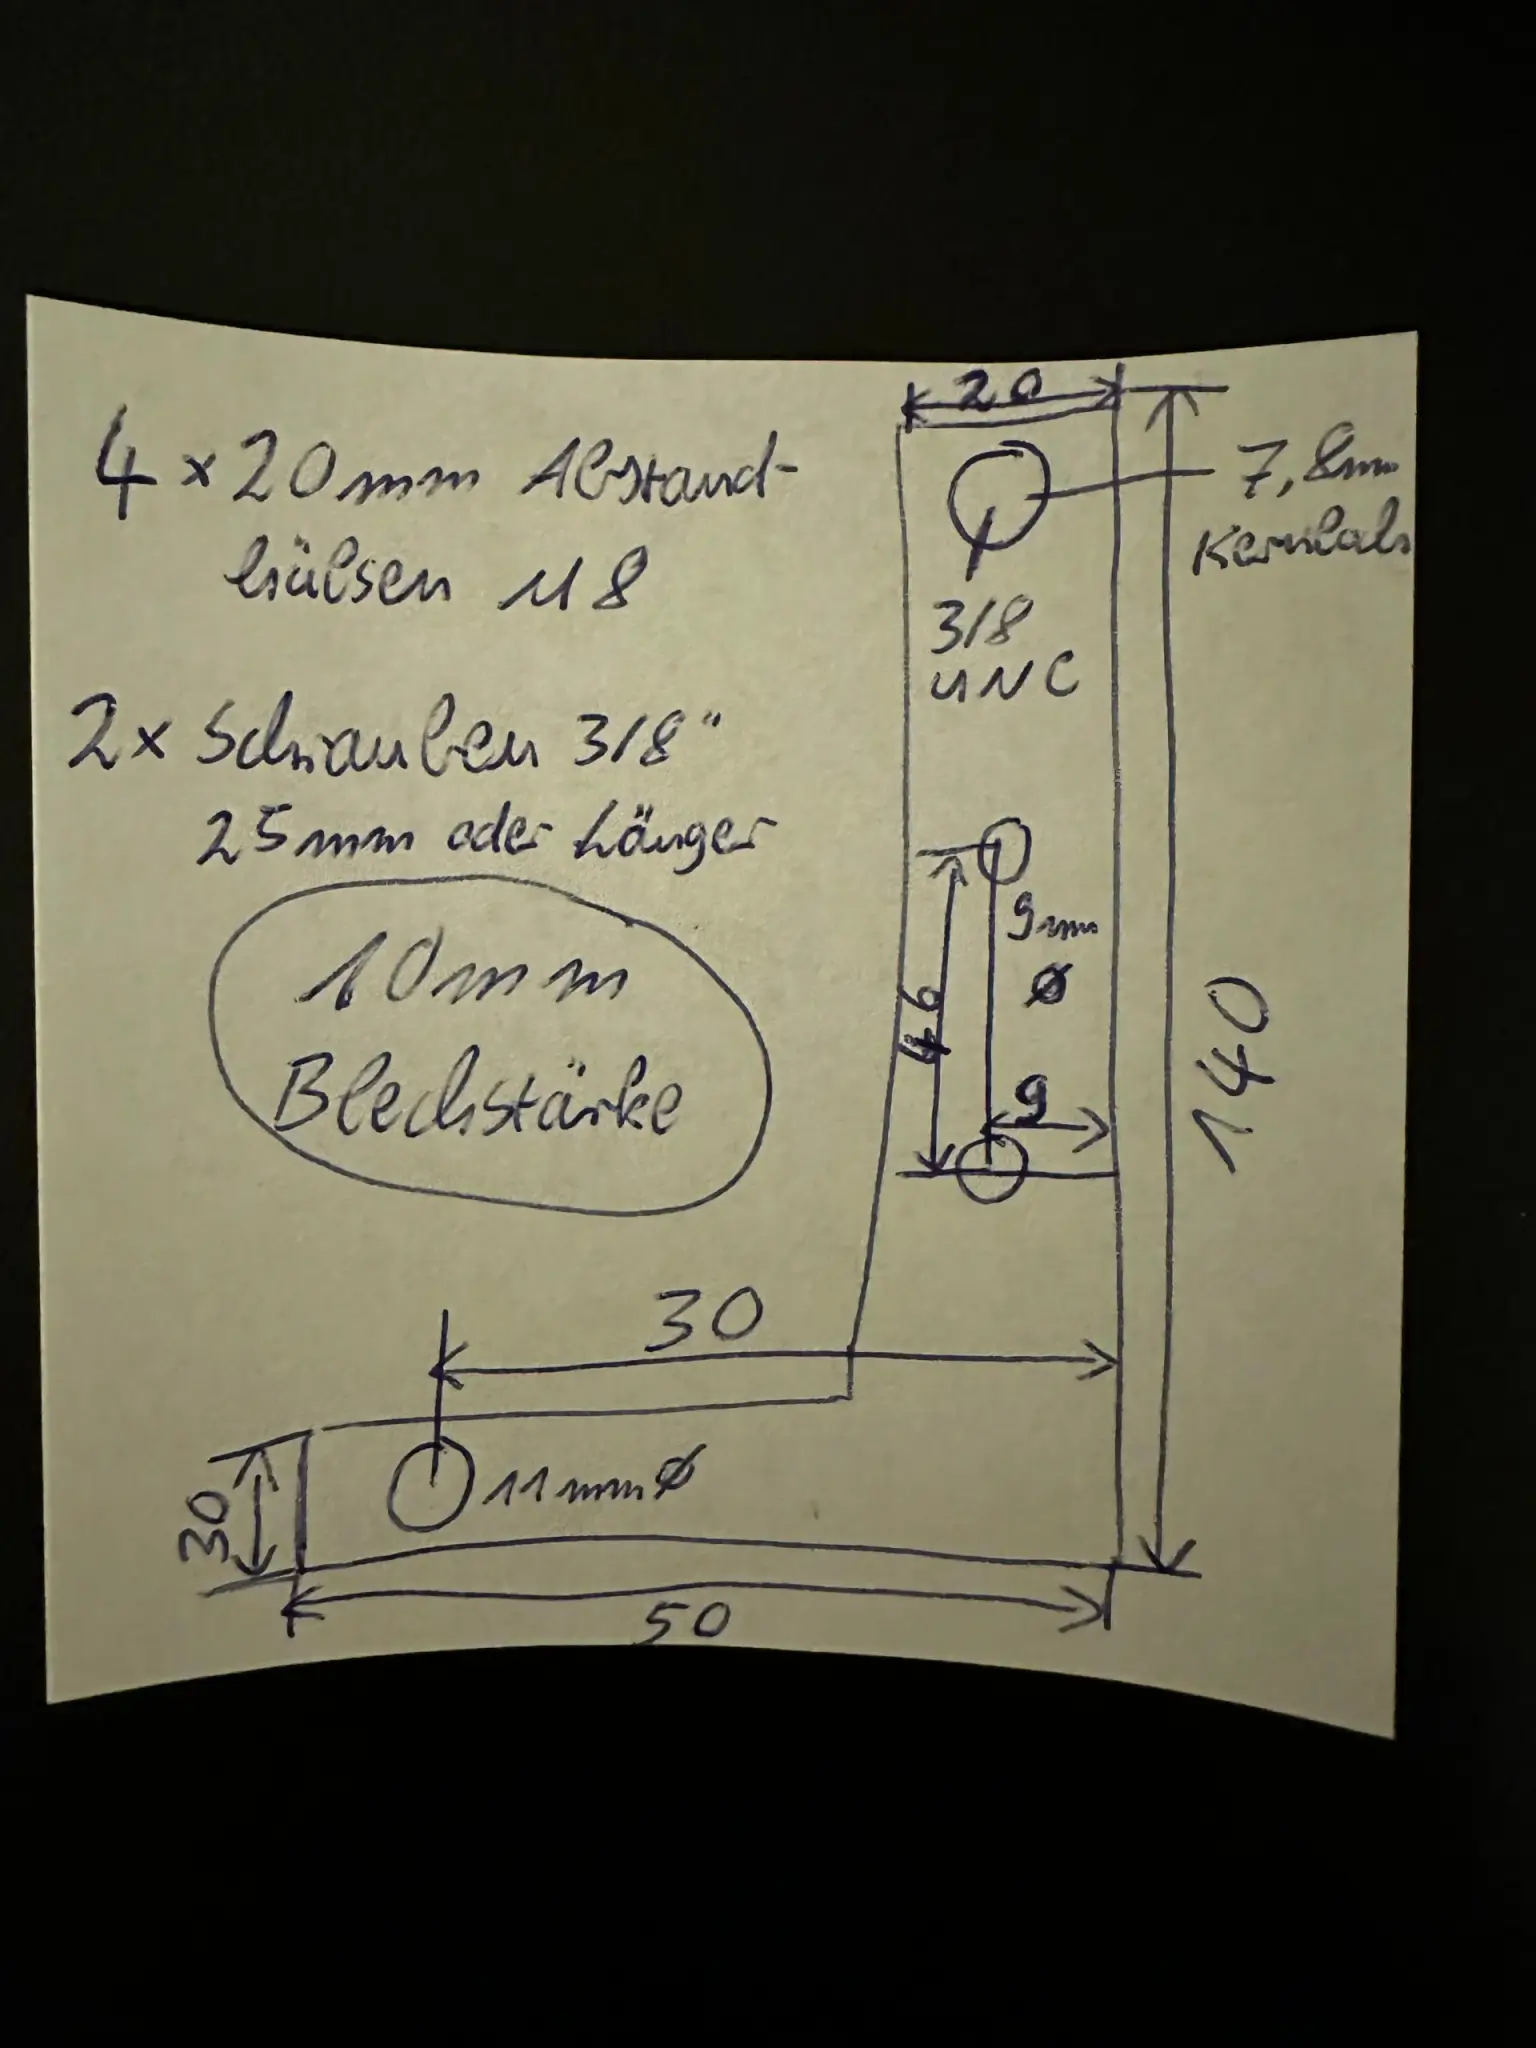 4 x 20mm Abstand-
hülsen M8
2x Schrauben 3/8"
25mm oder Länger
10mm
Blechstärke
20
7,8mm
Kernloch
3/8
UNC
9mm
Ø
46
9
140
30
11mm Ø
30
50